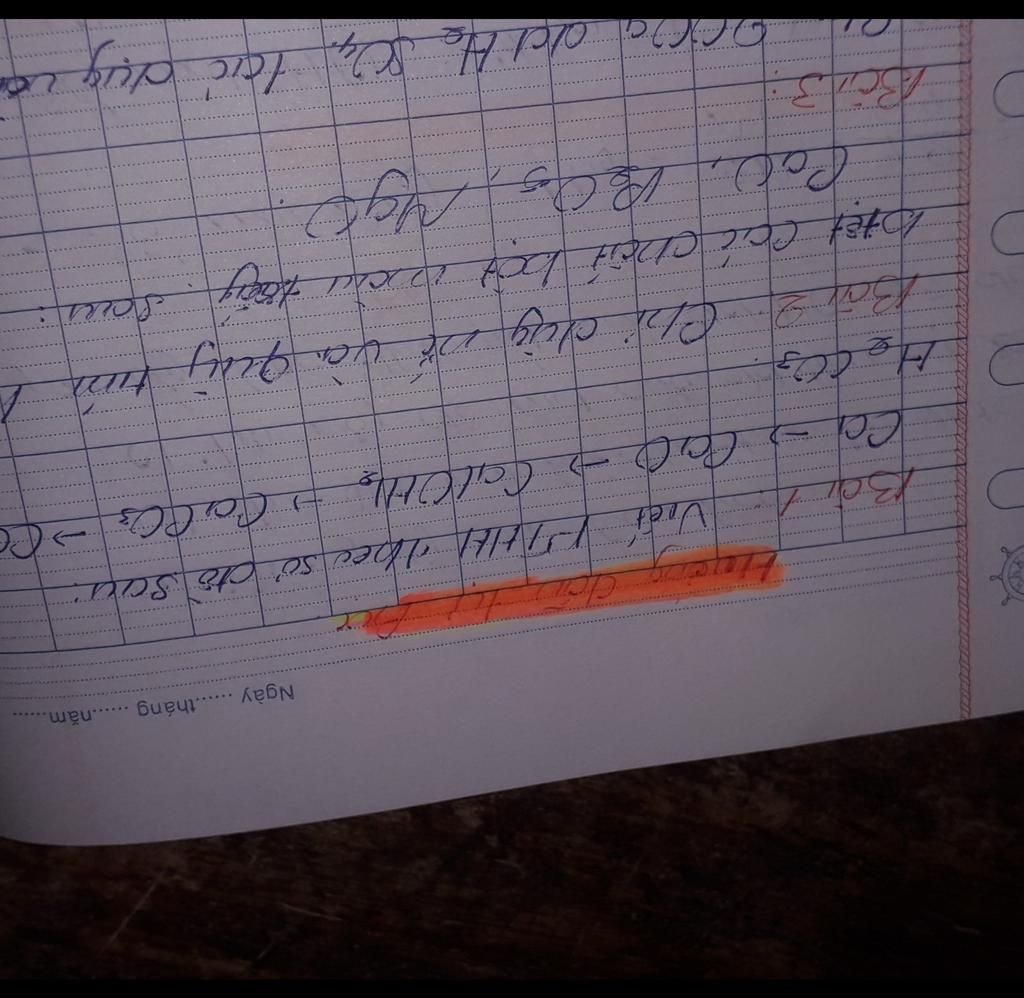 Ngày ......tháng ......năm......
Hướng dẫn tự học
Bài 1 Viết PTHH theo sơ đồ sau:
Ca → CaO → Ca(OH)₂ → CaCO₃ → CO
H₂CO₃
Bài 2 Chỉ dùng nước và quỳ tím
biết các chất bột màu trắng sau:
CaO, P₂O₅, MgO
Bài 3:
dd H₂SO₄ tác dụng